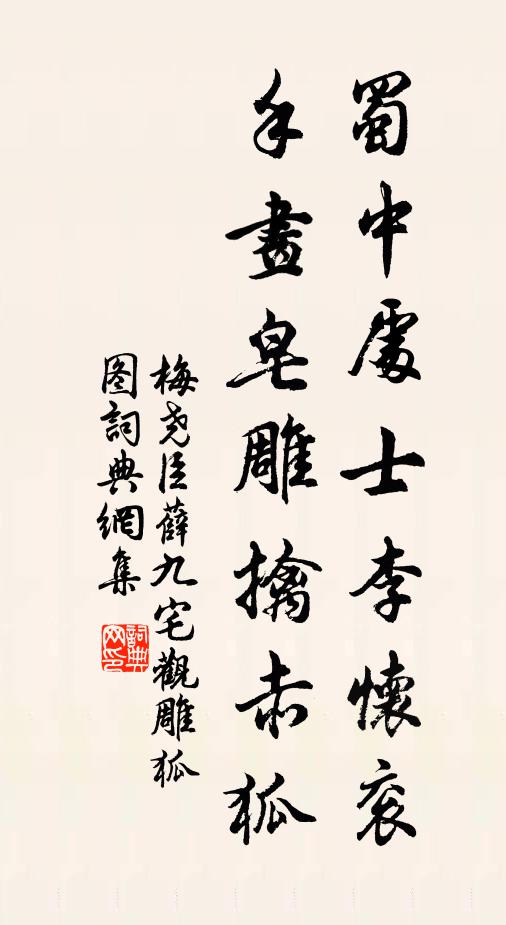 蜀中處士李懷袞
手畫皂雕擒赤狐
梅尧臣薛九宅觀雕狐
图詞典網集
詞典网印